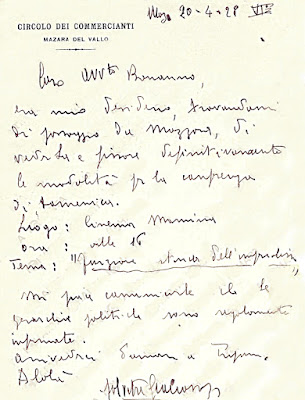 CIRCOLO DEI COMMERCIANTI
MAZARA DEL VALLO
20-4-28 VIº
Caro Avvto Bonanno,
era mio desiderio, trovandomi
di passaggio da Mazzara, di
vederla e fissare definitivamente
le modalità per la conferenza
di Domenica.
Luogo: Cinema
Ora: alle 16
Tema: "Funzione dell'
Mi comunicarle che le
gerarchie politiche sono
informate.
Arrivederci a
Alalà